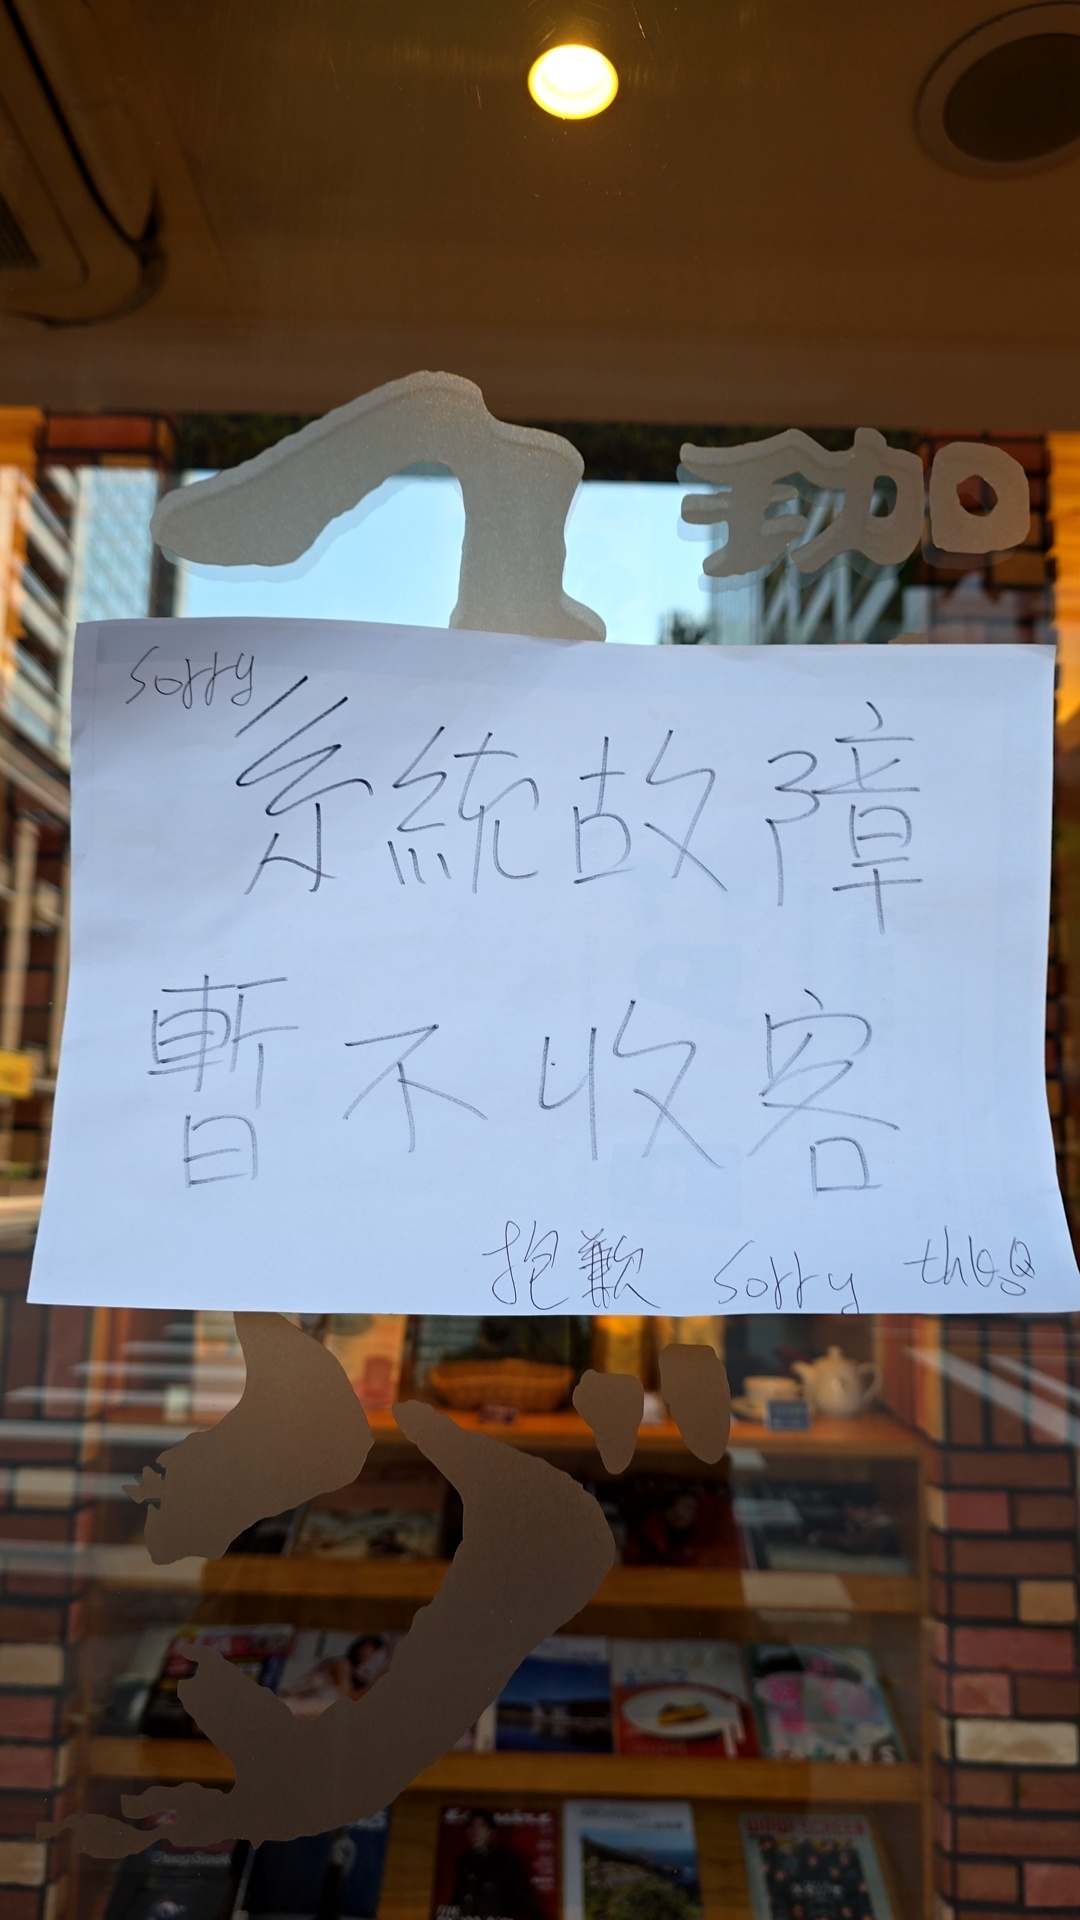 珈
sorry
系統故障
暫不收客
抱歉 sorry